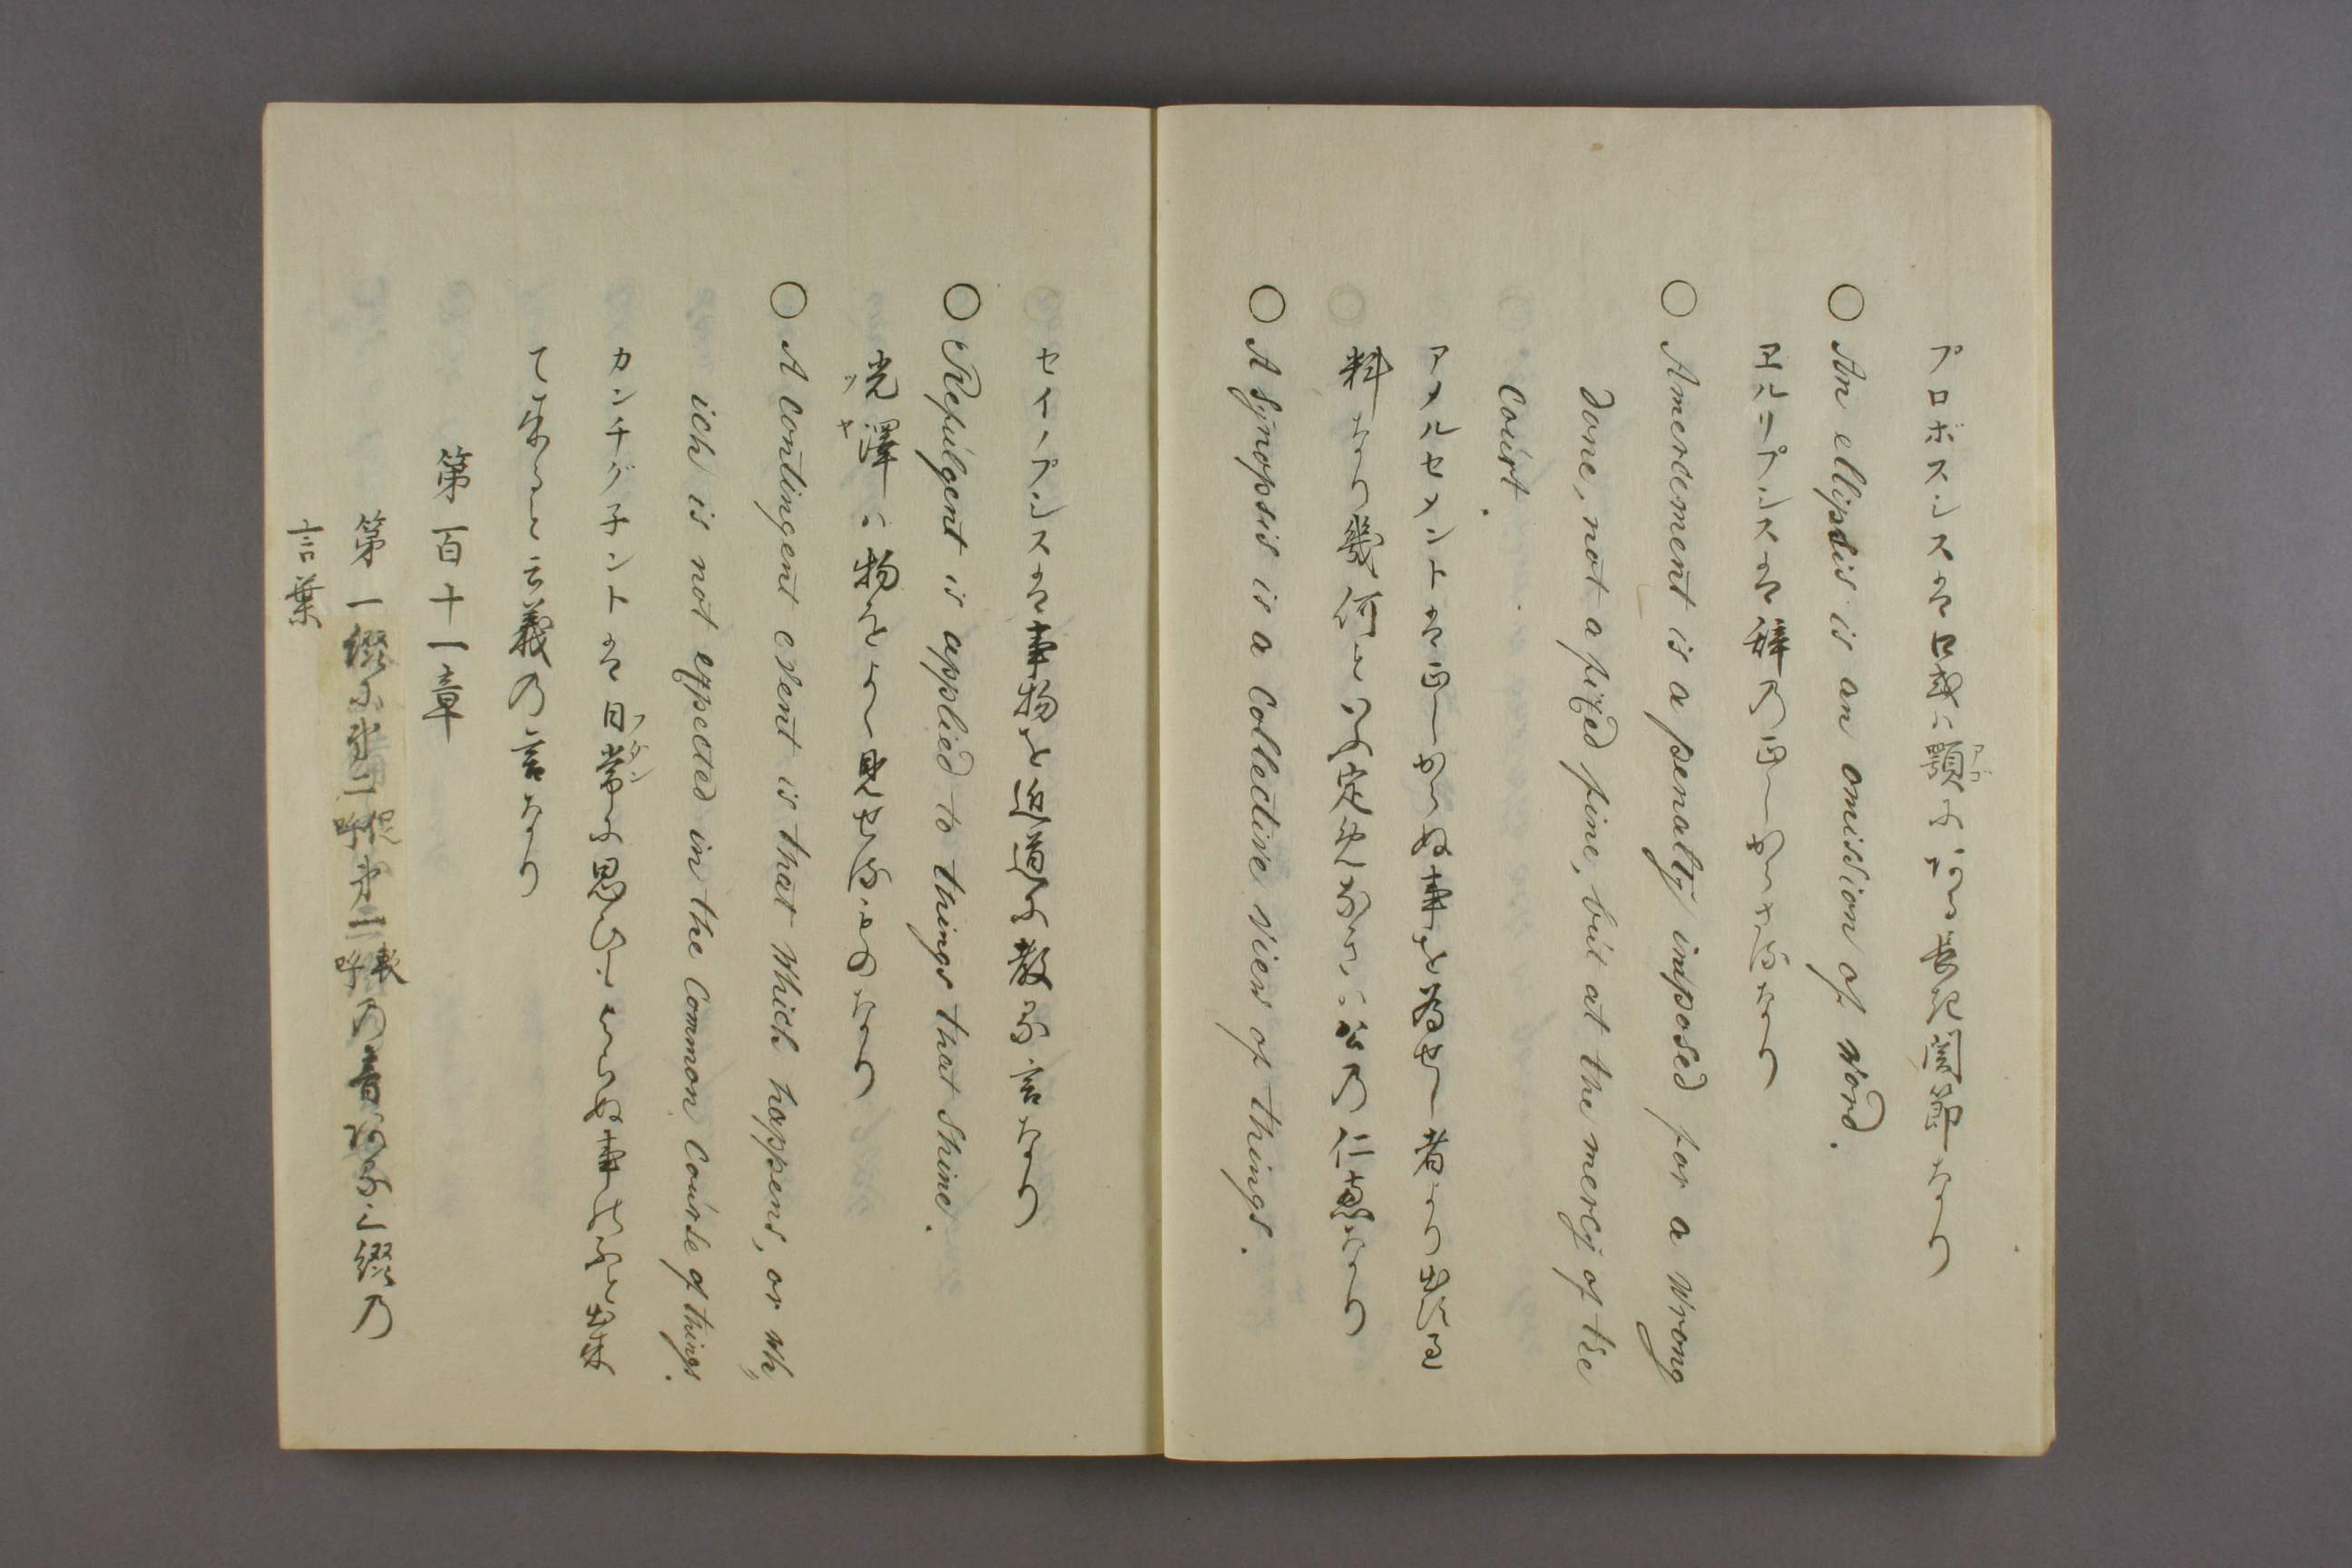 プロボスシス者口或ハ顎アゴに阿る長起関節なり
○ An ellipsis is an omission of word.
ヱルリプシス者辞乃正しからさ留なり
○ Amercement is a penalty imposed for a wrong
done, not a fixed fine, but at the mercy of the
court.
アメルセメント者正しからぬ事を為せし者より出さる
料なり幾何と定免
乃仁恵なり
○ A synopsis is a collective view of things.
セイノプシス者事物を近道に教る言なり
○ Refulgent is applied to things that shine.
光澤ツヤハ物をよく見せるものなり
○ A contingent event is that which happens, or wh〟
ich is not expected in the common course of things.
カンチグ子ント者日常フダンに思ひもよらぬ事出来
て来しと云義乃言なり
第百十一章
第一綴に第二第二乃音阿る三綴乃
言葉